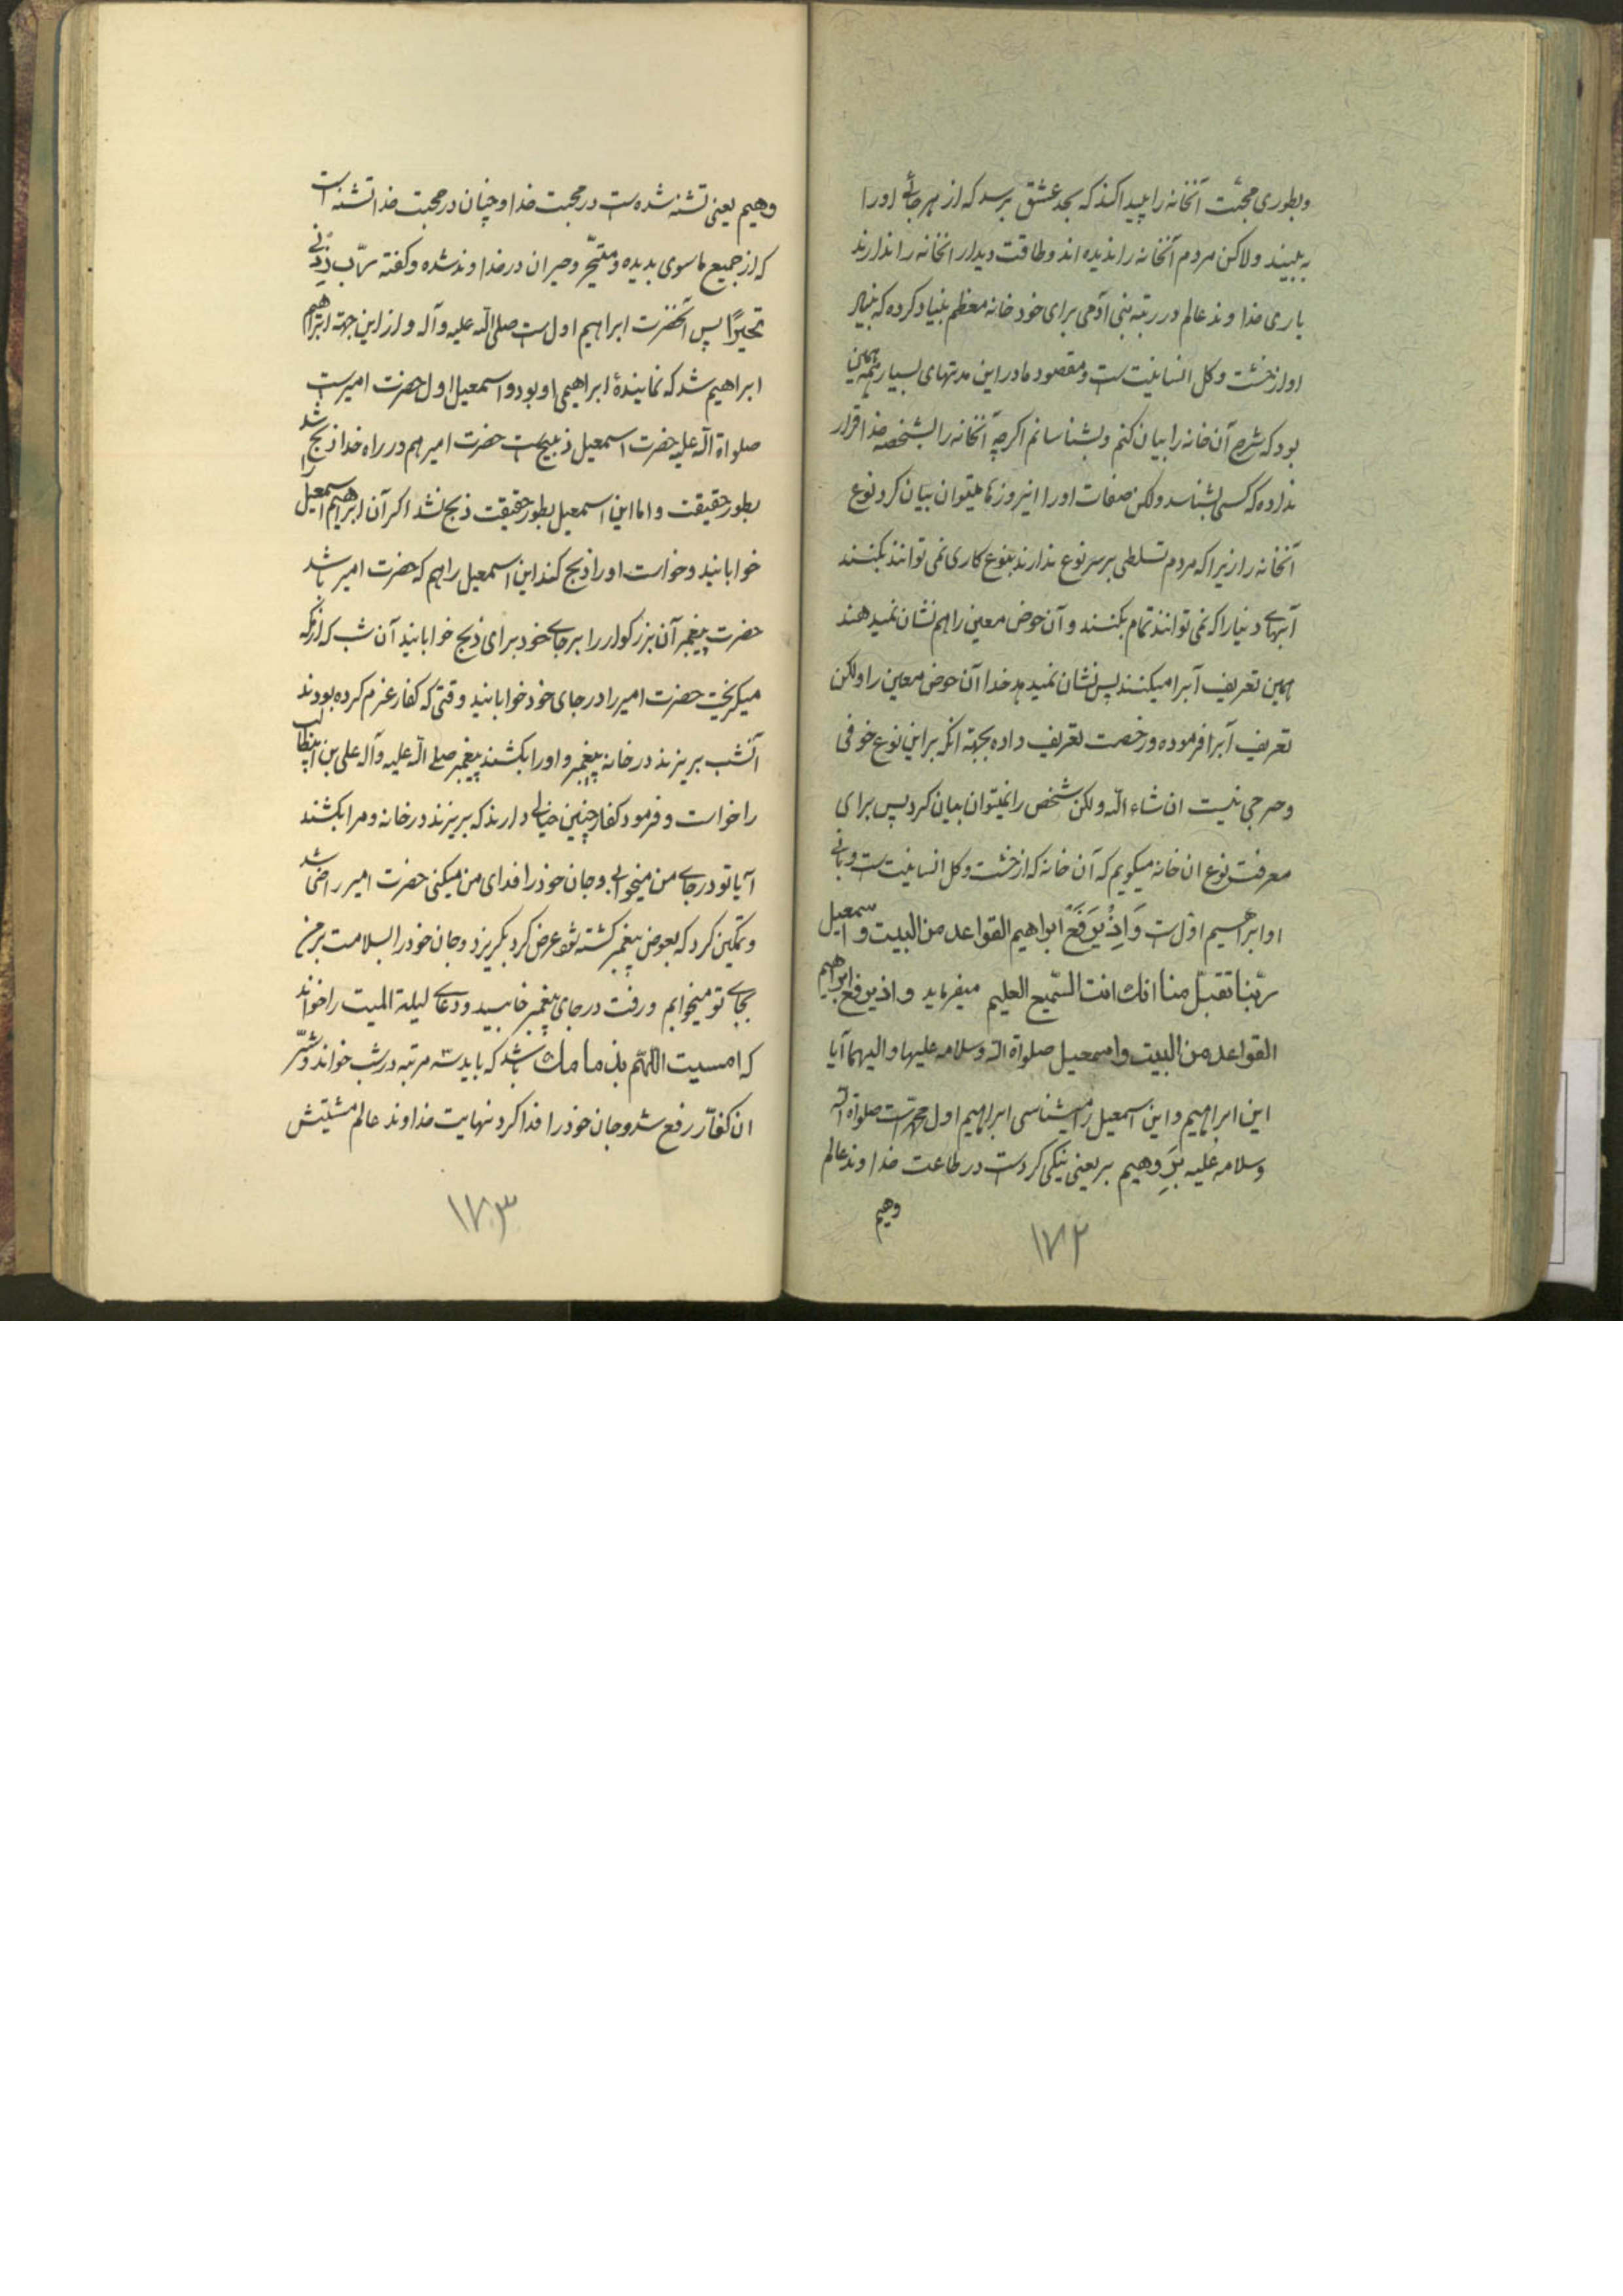 وبطوری محبّت آنخانه را پیدا کند که بحد عشق برسد که از هر جائی اورا
به بیند ولاکن مردم آنخانه را ندیده اند وطاقت دیدار انخانه را ندارند
باری خداوند عالم در رتبه بنی آدمی برای خود خانه معظم بنیاد کرده که بنیاد
او از خشت وکل انسانیت است ومقصود ما در این مدتهای بسیار همه همین
بود که شرح آن خانه را بیان کنم وبشناسانم اکرچه آنخانه را بشخصه خدا قرار
نداده که کسی بشناسد ولکن صفات اورا امروز میتوان بیان کرد نوع
آنخانه را زیرا که مردم تسلطی بر سر نوع ندارند بنوع کاری نمی توانند بکنند
آبهای دنیا را که نمی توانند تمام بکنند و آن حوض معین را هم نشان نمیدهند
همین تعریف آبرا میکنند پس نشان نمیدهد خدا آن حوض معین را ولکن
تعریف آبرا فرموده ورخصت تعریف داده بجهة انکه بر این نوع خوفی
وحرجی نیست ان شاء الله ولکن شخص را نمیتوان بیان کرد پس برای
معرفت نوع ان خانه میکویم که آن خانه که از خشت وکل انسانیت است وبانی
او ابراهیم اول است وَاِذْ یَرفَعُ ابراهیم القواعد من البیت و اسمعیل
ربّنا تقبّل منا انك انت السّمیع العلیم میفرماید واذ یرفع ابراهیم
القواعد من البیت واسمعیل صلواة الله وسلامه علیها والیهما آیا
این ابراهیم واین اسمعیل را میشناسی ابراهیم اول محمّد است صلواة الله
وسلامه علیه بَرِ وهیم بر یعنی نیکی کرد است در طاعت خداوند عالم
وهیم
۱۷۲
وهیم یعنی تشنه شده است در محبت خدا وچنان در محبت خدا تشنه است
که از جمیع ما سوی بدیده ومتحیّر وحیران در خداوند شده وکفته ربّ زِدْنی
تحیرًا پس آنحضرت ابراهیم اول است صلی الله علیه وآله واز این جهة ابراهیم
ابراهیم شد که نمایندهٔ ابراهیمی او بود واسمعیل اول حضرت امیر است
صلواة الله علیه حضرت اسمعیل ذبیح است حضرت امیر هم در راه خدا ذبح شد
بطور حقیقت واما این اسمعیل بطور حقیقت ذبح نشد اکر آن ابراهیم اسمعیل را
خوابانید وخواست اورا ذبح کند این اسمعیل را هم که حضرت امیر باشد
حضرت پیغمبر آن بزرکوار را بر جای خود برای ذبح خوابانید آن شب که از مکه
میکریخت حضرت امیر را در جای خود خوابانید وقتی که کفار عزم کرده بودند
آنشب بریزند در خانه پیغمبر واورا بکشند پیغمبر صلی الله علیه وآله علی بن ابیطالب
را خواست وفرمود کفار چنین خیالی دارند که بریزند در خانه ومرا بکشند
آیا تو در جای من میخوابی وجان خود را فدای من میکنی حضرت امیر راضی شد
وتمکین کرد که بعوض پیغمبر کشته شود عرض کرد بکریزد وجان خود را بسلامت بر من
بجای تو میخوابم ورفت در جای پیغمبر خابید ودعای لیلة المبیت را خواند
که امسیت اللّهم بذمامك باشد که باید سه مرتبه در شب خواند وشرّ
ان کفّار رفع شد وجان خود را فدا کرد نهایت خداوند عالم مشیتش
۱۷۳